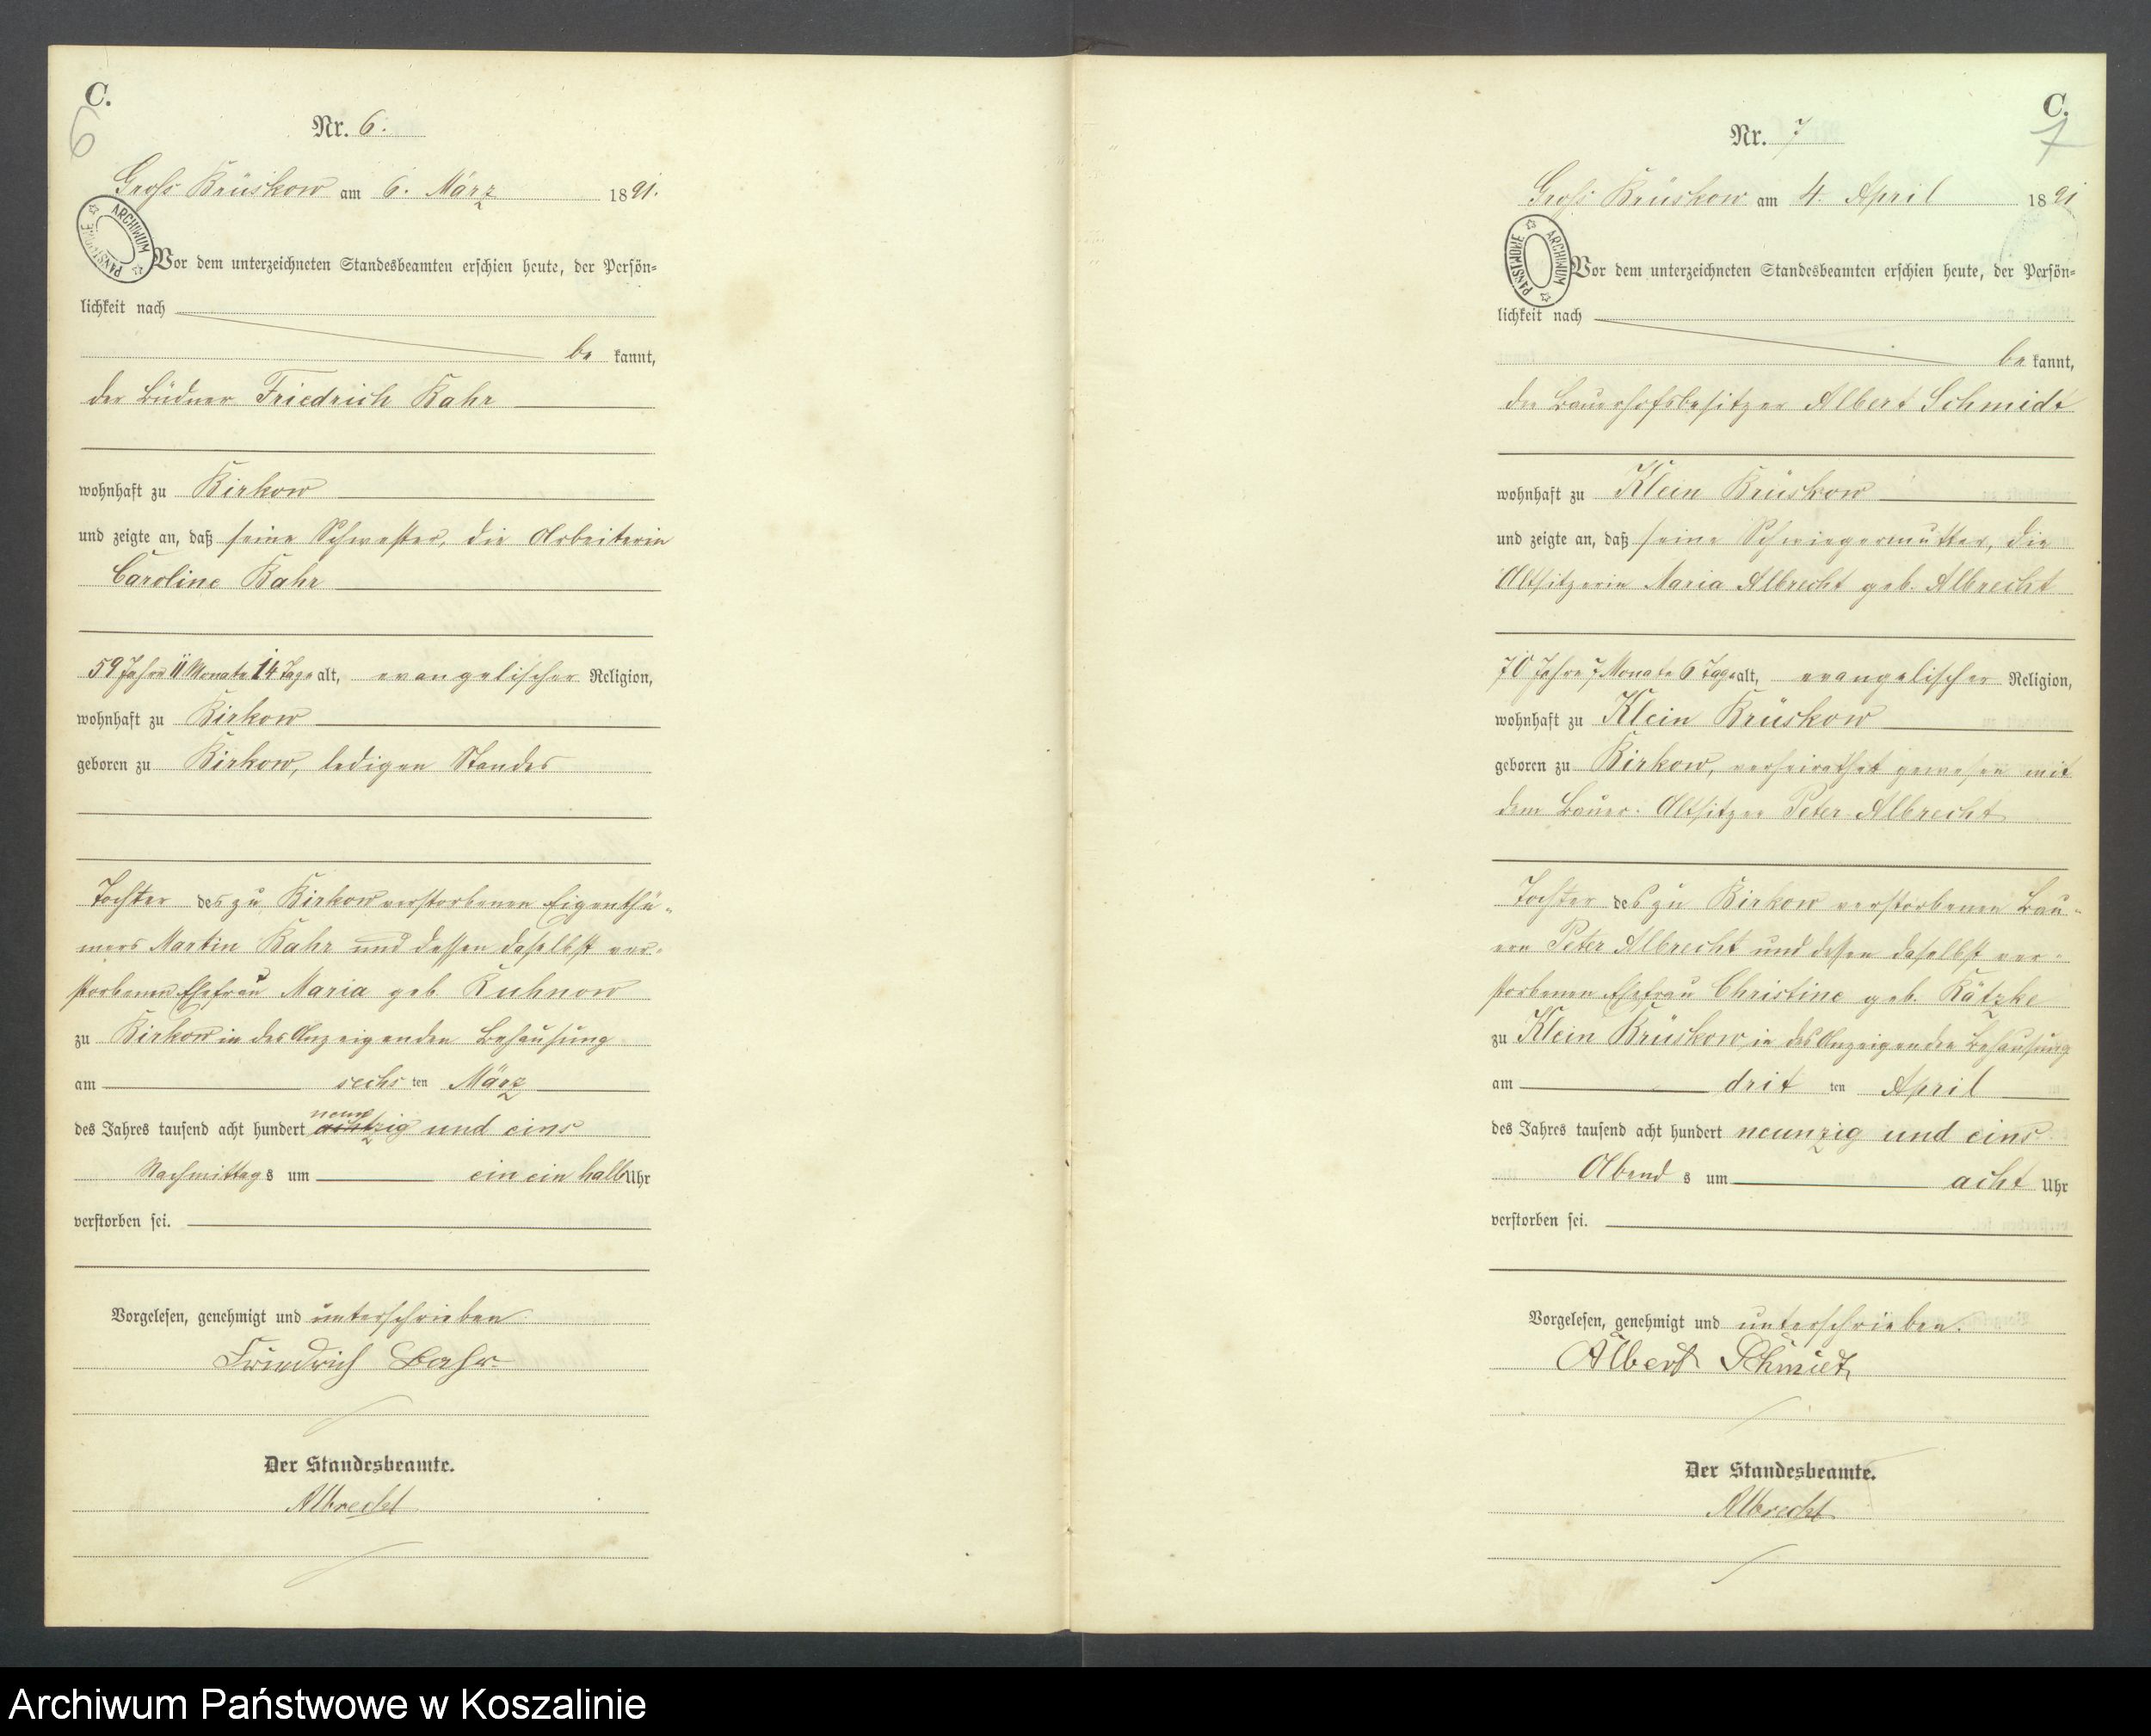 C.
6
Nr. 6.
Gross Krüskow am 6. März 1891.
ARCHIWUM PAŃSTWOWE
Vor dem unterzeichneten Standesbeamten erschien heute, der Persön-
lichkeit nach
be kannt,
der Büdner Friedrich Bahr
wohnhaft zu Birkow
und zeigte an, daß seine Schwester, die Arbeiterin
Caroline Bahr
59 Jahre 11 Monate 14 Tage alt, evangelischer Religion,
wohnhaft zu Birkow
geboren zu Birkow, ledigen Standes
Tochter des zu Birkow verstorbenen Eigenthü-
mers Martin Bahr und dessen daselbst ver-
storbenen Ehefrau Maria geb. Kuhnow
zu Birkow in des Anzeigenden Behausung
am sechs ten März
neun
des Jahres tausend acht hundert achtzig und eins
Nachmittag s um ein ein halb Uhr
verstorben sei.
Vorgelesen, genehmigt und unterschrieben
Friedrich Bahr
Der Standesbeamte.
Albrecht
C.
7
Nr. 7
Gross Krüskow am 4. April 1891
ARCHIWUM PAŃSTWOWE
Vor dem unterzeichneten Standesbeamten erschien heute, der Persön-
lichkeit nach
be kannt,
der Bauerhofsbesitzer Albert Schmidt
wohnhaft zu Klein Krüskow
und zeigte an, daß seine Schwiegermutter, die
Altsitzerin Maria Albrecht geb. Albrecht
70 Jahre 7 Monate 6 Tage alt, evangelischer Religion,
wohnhaft zu Klein Krüskow
geboren zu Birkow, verheirathet gewesen mit
dem Bauer-Altsitzer Peter Albrecht
Tochter des zu Birkow verstorbenen Bau-
ern Peter Albrecht und dessen daselbst ver-
storbenen Ehefrau Christine geb. Kätzke
zu Klein Krüskow, in des Anzeigenden Behausung
am drit ten April
des Jahres tausend acht hundert neunzig und eins
Abend s um acht Uhr
verstorben sei.
Vorgelesen, genehmigt und unterschrieben.
Albert Schmidt
Der Standesbeamte.
Albrecht
Archiwum Państwowe w Koszalinie